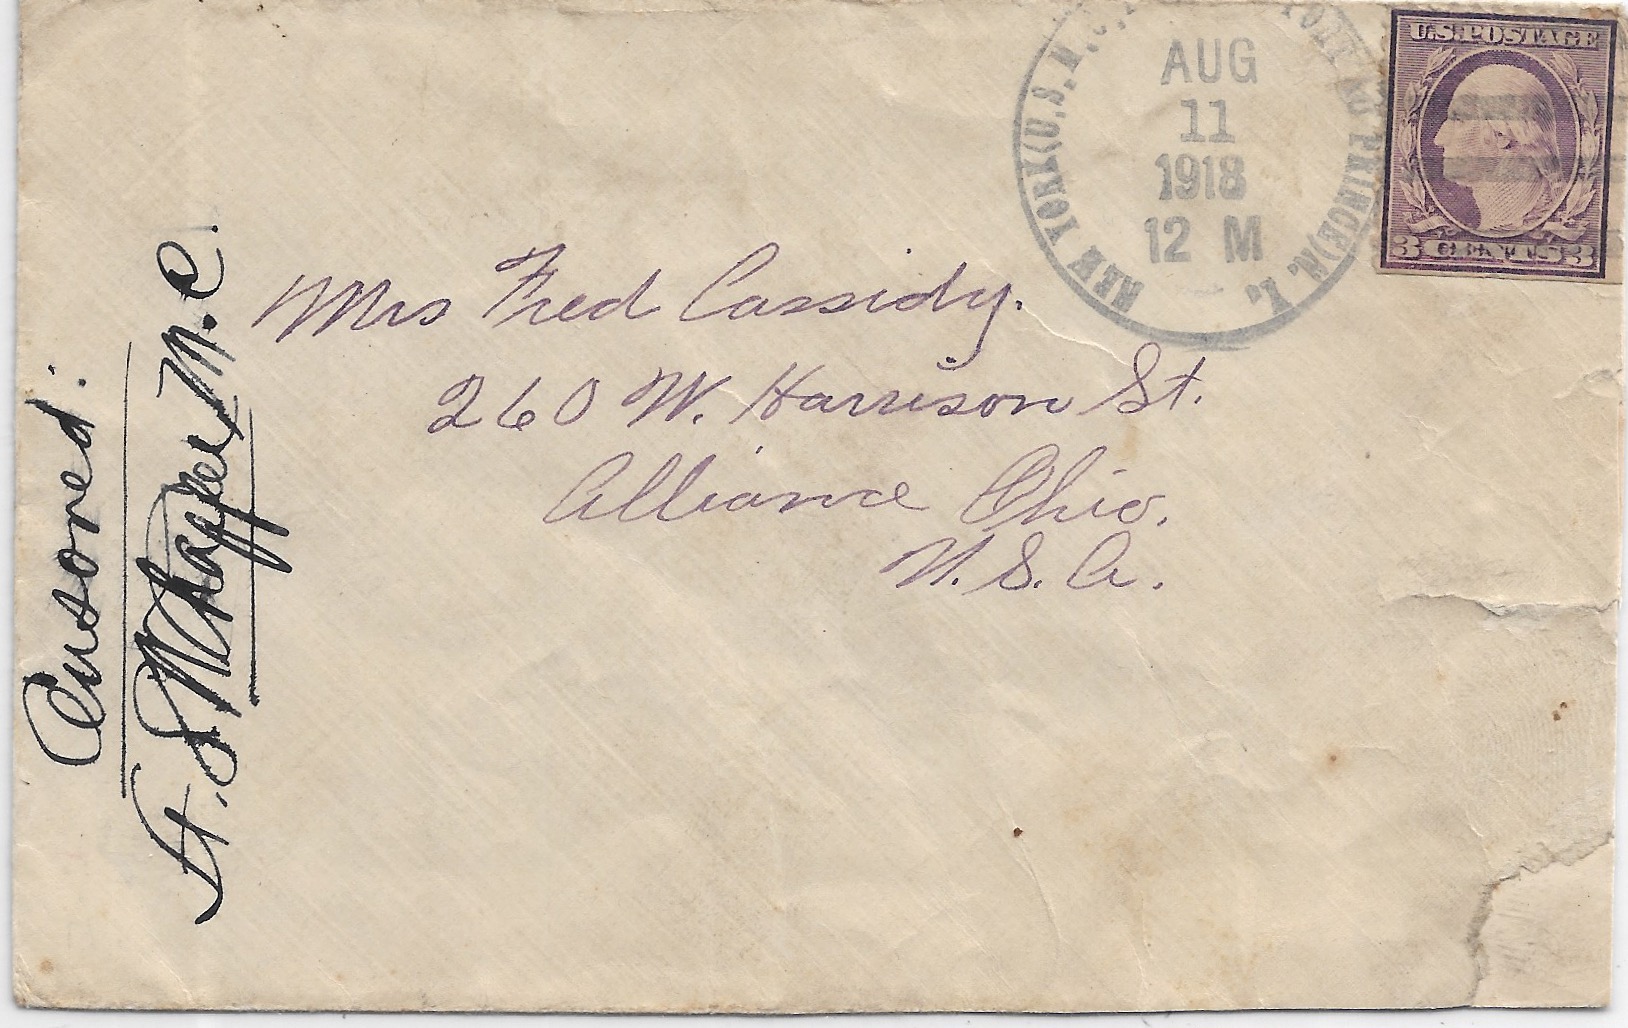 U.S. POSTAGE
3 CENTS 3
NEW YORK (U.S.M.C. PORT AU PRINCE) N.Y.
AUG
11
1918
12 M
Mrs Fred Cassidy.
260 W. Harrison St.
Alliance Ohio.
U.S.A.
Censored:
Lt. M.C.